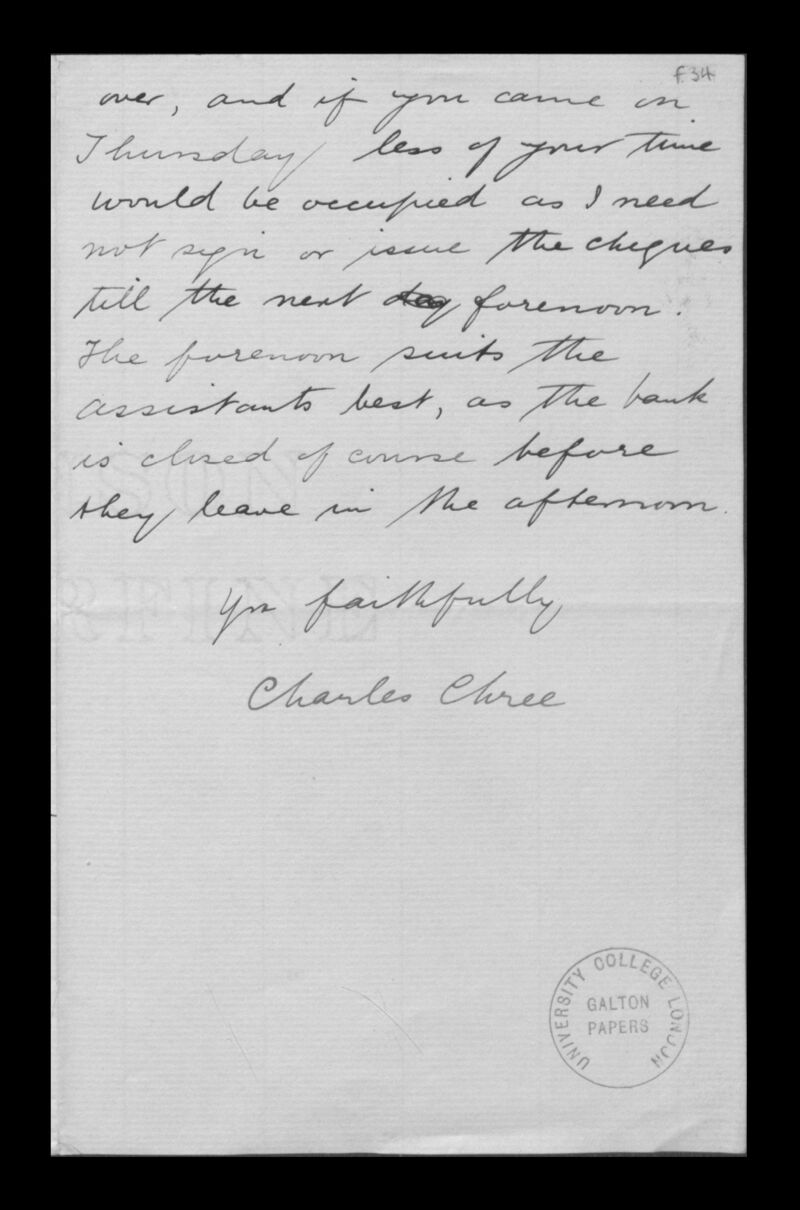 f.34
over, and if you came on
Thursday less of your time
would be occupied as I need
not sign or issue the cheques
till the next day forenoon.
The forenoon suits the
assistants best, as the bank
is closed of course before
they leave in the afternoon.
Yrs faithfully
Charles Chree
UNIVERSITY COLLEGE LONDON
GALTON
PAPERS